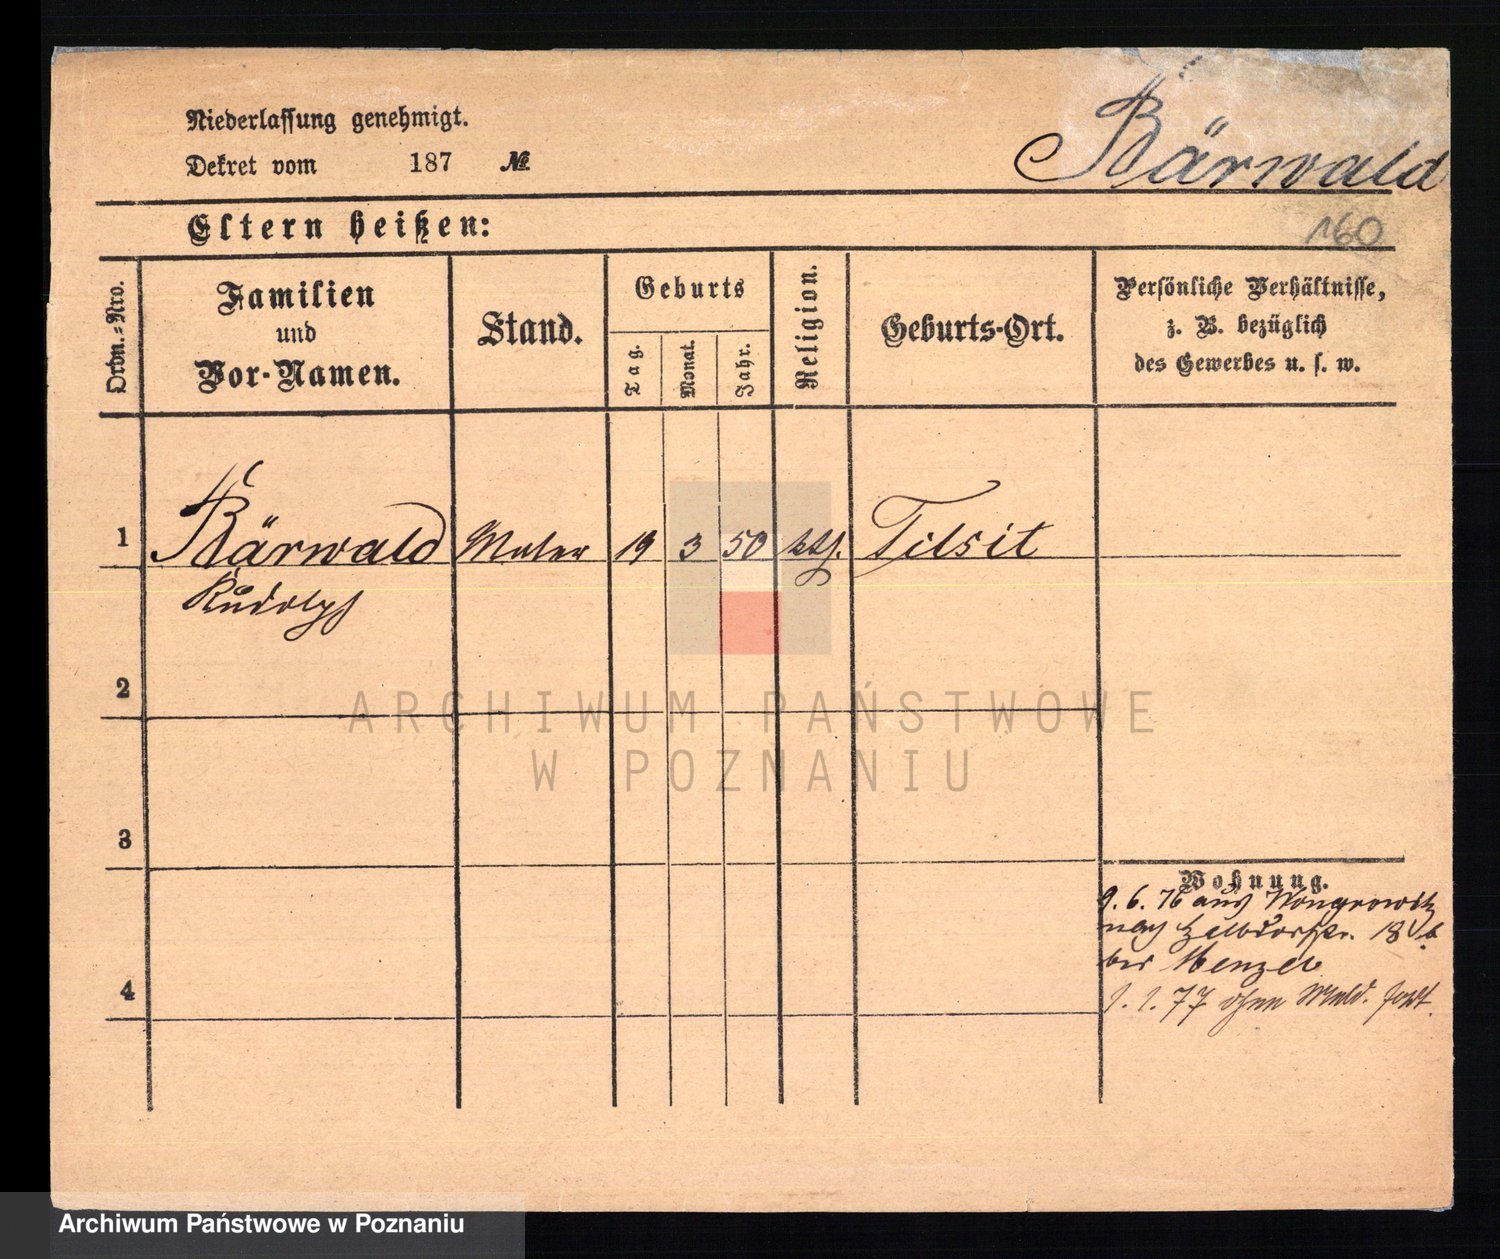 Niederlassung genehmigt.
Dekret vom 187 №
Bärwald
160
Eltern heißen:
Ordn.-Nro.
Familien
und
Vor-Namen.
Stand.
Geburts
Tag.
Monat.
Jahr.
Religion.
Geburts-Ort.
Persönliche Verhältnisse,
z. B. bezüglich
des Gewerbes u. s. w.
1 Bärwald Maler 19 3 50 kth. Tilsit
Rudolph
2
ARCHIWUM PAŃSTWOWE
W POZNANIU
3
Wohnung.
9. 6. 76 aus Wongrowitz
nach 18
bei Menzel
1. 1. 77 ohne Meld. fort.
4
Archiwum Państwowe w Poznaniu